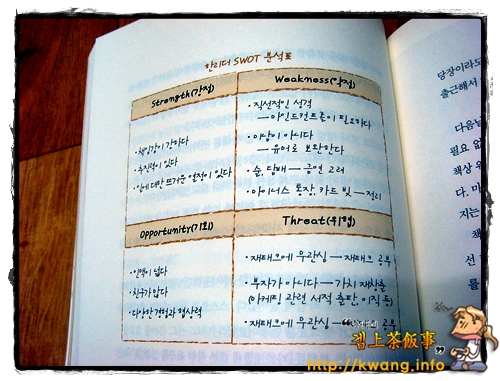 안리더 SWOT 분석표
Strength(강점)
· 책임감이 강하다
· 추진력이 있다
· 일에 대한 뜨거운 열정이 있다
Weakness(약점)
· 직선적인 성격
→ 마인드컨트롤이 필요하다
· 미남이 아니다
→ 유머로 보완한다
· 술, 담배 → 금연 고려
· 마이너스 통장, 카드 빚 → 정리
Opportunity(기회)
· 인맥이 넓다
· 친구가 많다
· 다양한 경험과 결사력
Threat(위협)
· 재테크에 무관심 → 재테크 공부
· 부자가 아니다 → 가치 재창출
(마케팅 관련 서적 출판, 이직 등)
· 재테크에 무관심 → 공부
당장이라도
출근해서
다음날
필요 없
책상 위
다. 마
지는
책
선
를
習上茶飯事
http://kwang.info